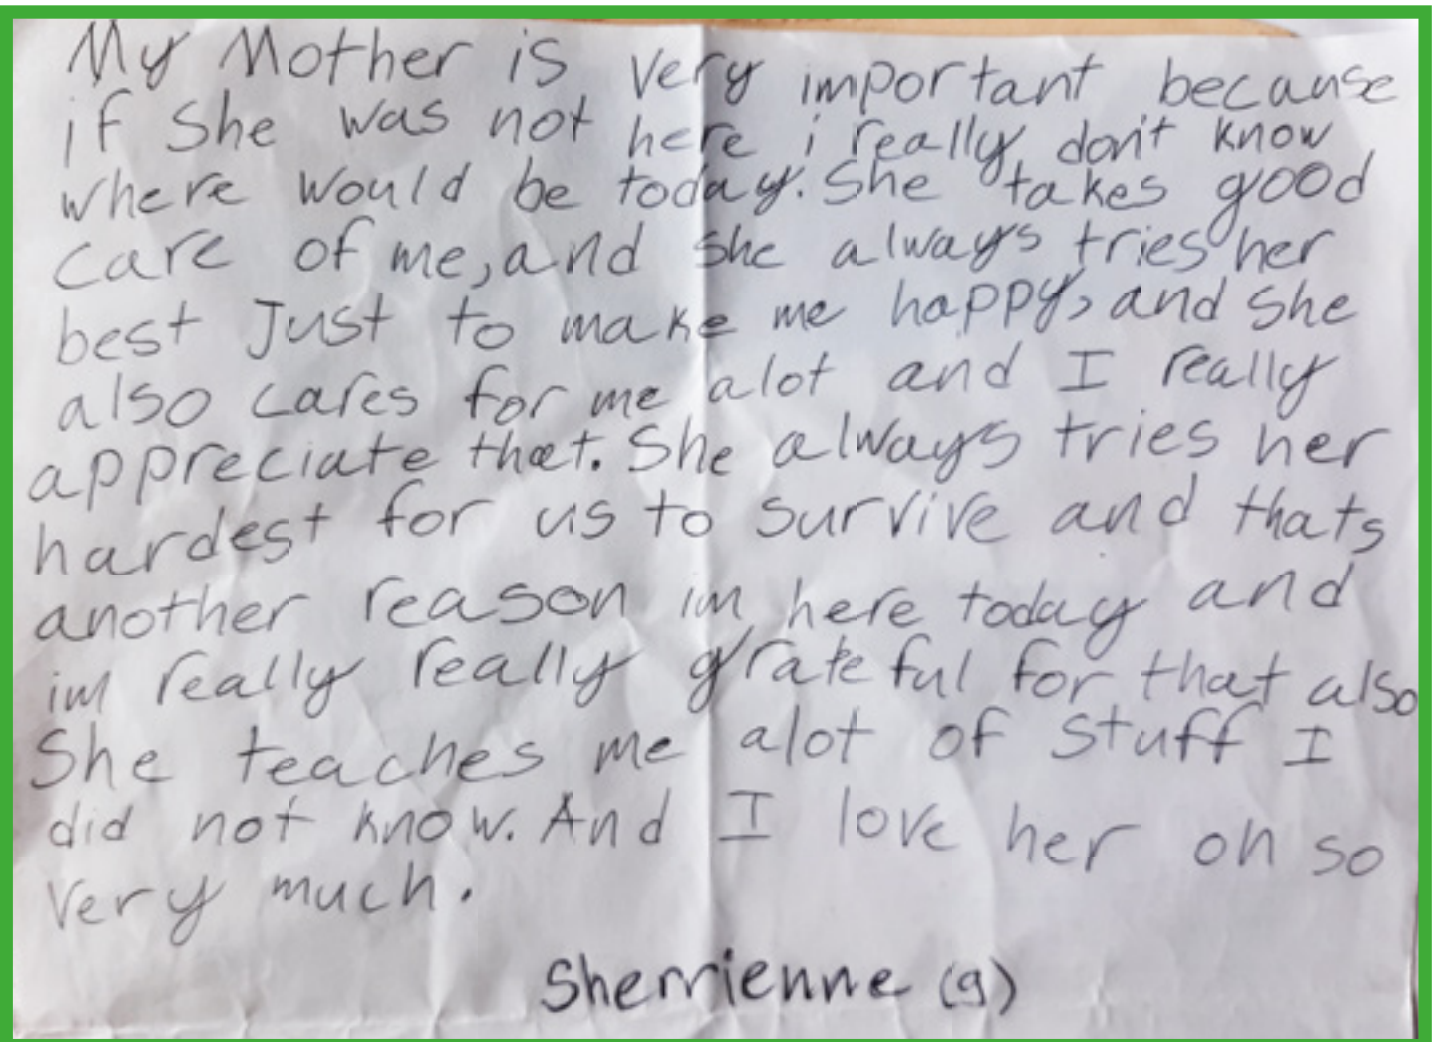 My Mother is very important because
if She was not here i really don't know
where would be today. She takes good
care of me, and she always tries her
best Just to make me happy, and She
also cares for me alot and I really
appreciate that. She always tries her
hardest for us to survive and thats
another reason im here today and
im really really grateful for that also
She teaches me alot of stuff I
did not know. And I love her oh so
very much.
Sherrienne (9)